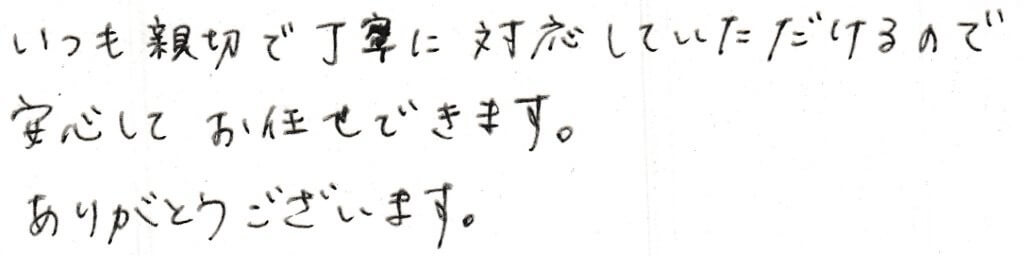 いつも親切で丁寧に対応していただけるので
安心してお任せできます。
ありがとうございます。